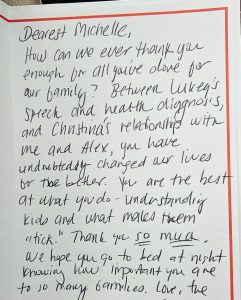 Dearest Michelle,
How can we ever thank you
enough for all you've done for
our family? Between Lukey's
speech and health diagnosis,
and Christina's relationship with
me and Alex, you have
undoubtedly changed our lives
for the better. You are the best
at what you do - understanding
kids and what makes them
"tick." Thank you so much.
We hope you go to bed at night
knowing how important you are
to so many families. Love, the